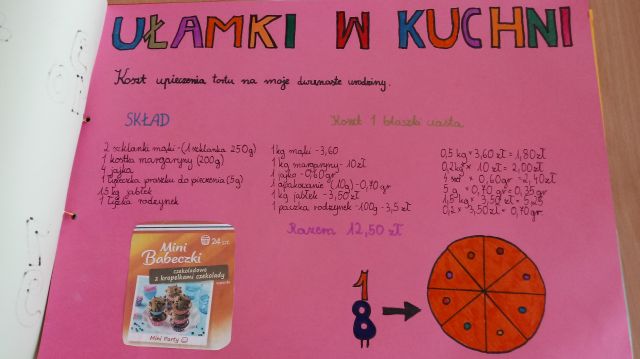 UŁAMKI W KUCHNI
Koszt upieczenia tortu na moje dwunaste urodziny.
SKŁAD
2 szklanki mąki -(1 szklanka 250g)
1 kostka margaryny (200g)
4 jajka
1 łyżeczka proszku do pieczenia (5g)
1,5kg jabłek
1 łyżka rodzynek
Koszt 1 blaszki ciasta
1kg mąki -3,60
1kg margaryny- 10zł
1 jajko -0,60gr
1 opakowanie (10g) -0,70 gr
1kg jabłek -3,50zł
1 paczka rodzynek -100g -3,5zł
0,5 kg * 3,60 zł = 1,80zł
0,2kg * 10 zł = 2,00zł
4 szt * 0,60gr = 2,40zł
5 g * 0,70 gr = 0,35 gr
1,5kg * 3,50 zł = 5,25
0,2 * 3,50zł = 0,70gr
Razem 12,50 zł
24 szt.
Mini
Babeczki
czekoladowe
z kropelkami czekolady
Mini Party
1
8